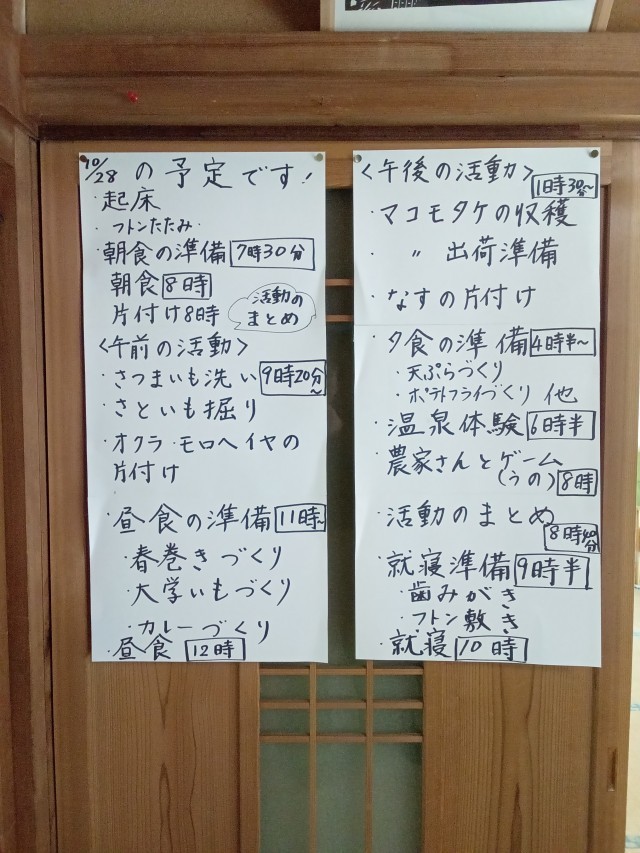 10/28 の予定です!
・起床
・フトンたたみ・
・朝食の準備 7時30分
朝食 8時
片付け8時
活動の
まとめ
<午前の活動>
・さつまいも洗い 9時20分~
・さといも掘り
・オクラ・モロヘイヤの
片付け
・昼食の準備 11時~
・春巻きづくり
・大学いもづくり
・カレーづくり
・昼食 12時
<午後の活動> 1時30分~
・マコモタケの収穫
・ 〃 出荷準備
・なすの片付け
・夕食の準備 4時半~
・天ぷらづくり
・ポテトフライづくり 他
・温泉体験 6時半
・農家さんとゲーム
(うの) 8時
・活動のまとめ
8時40分
・就寝準備 9時半
・歯みがき
・フトン敷き
・就寝 10時